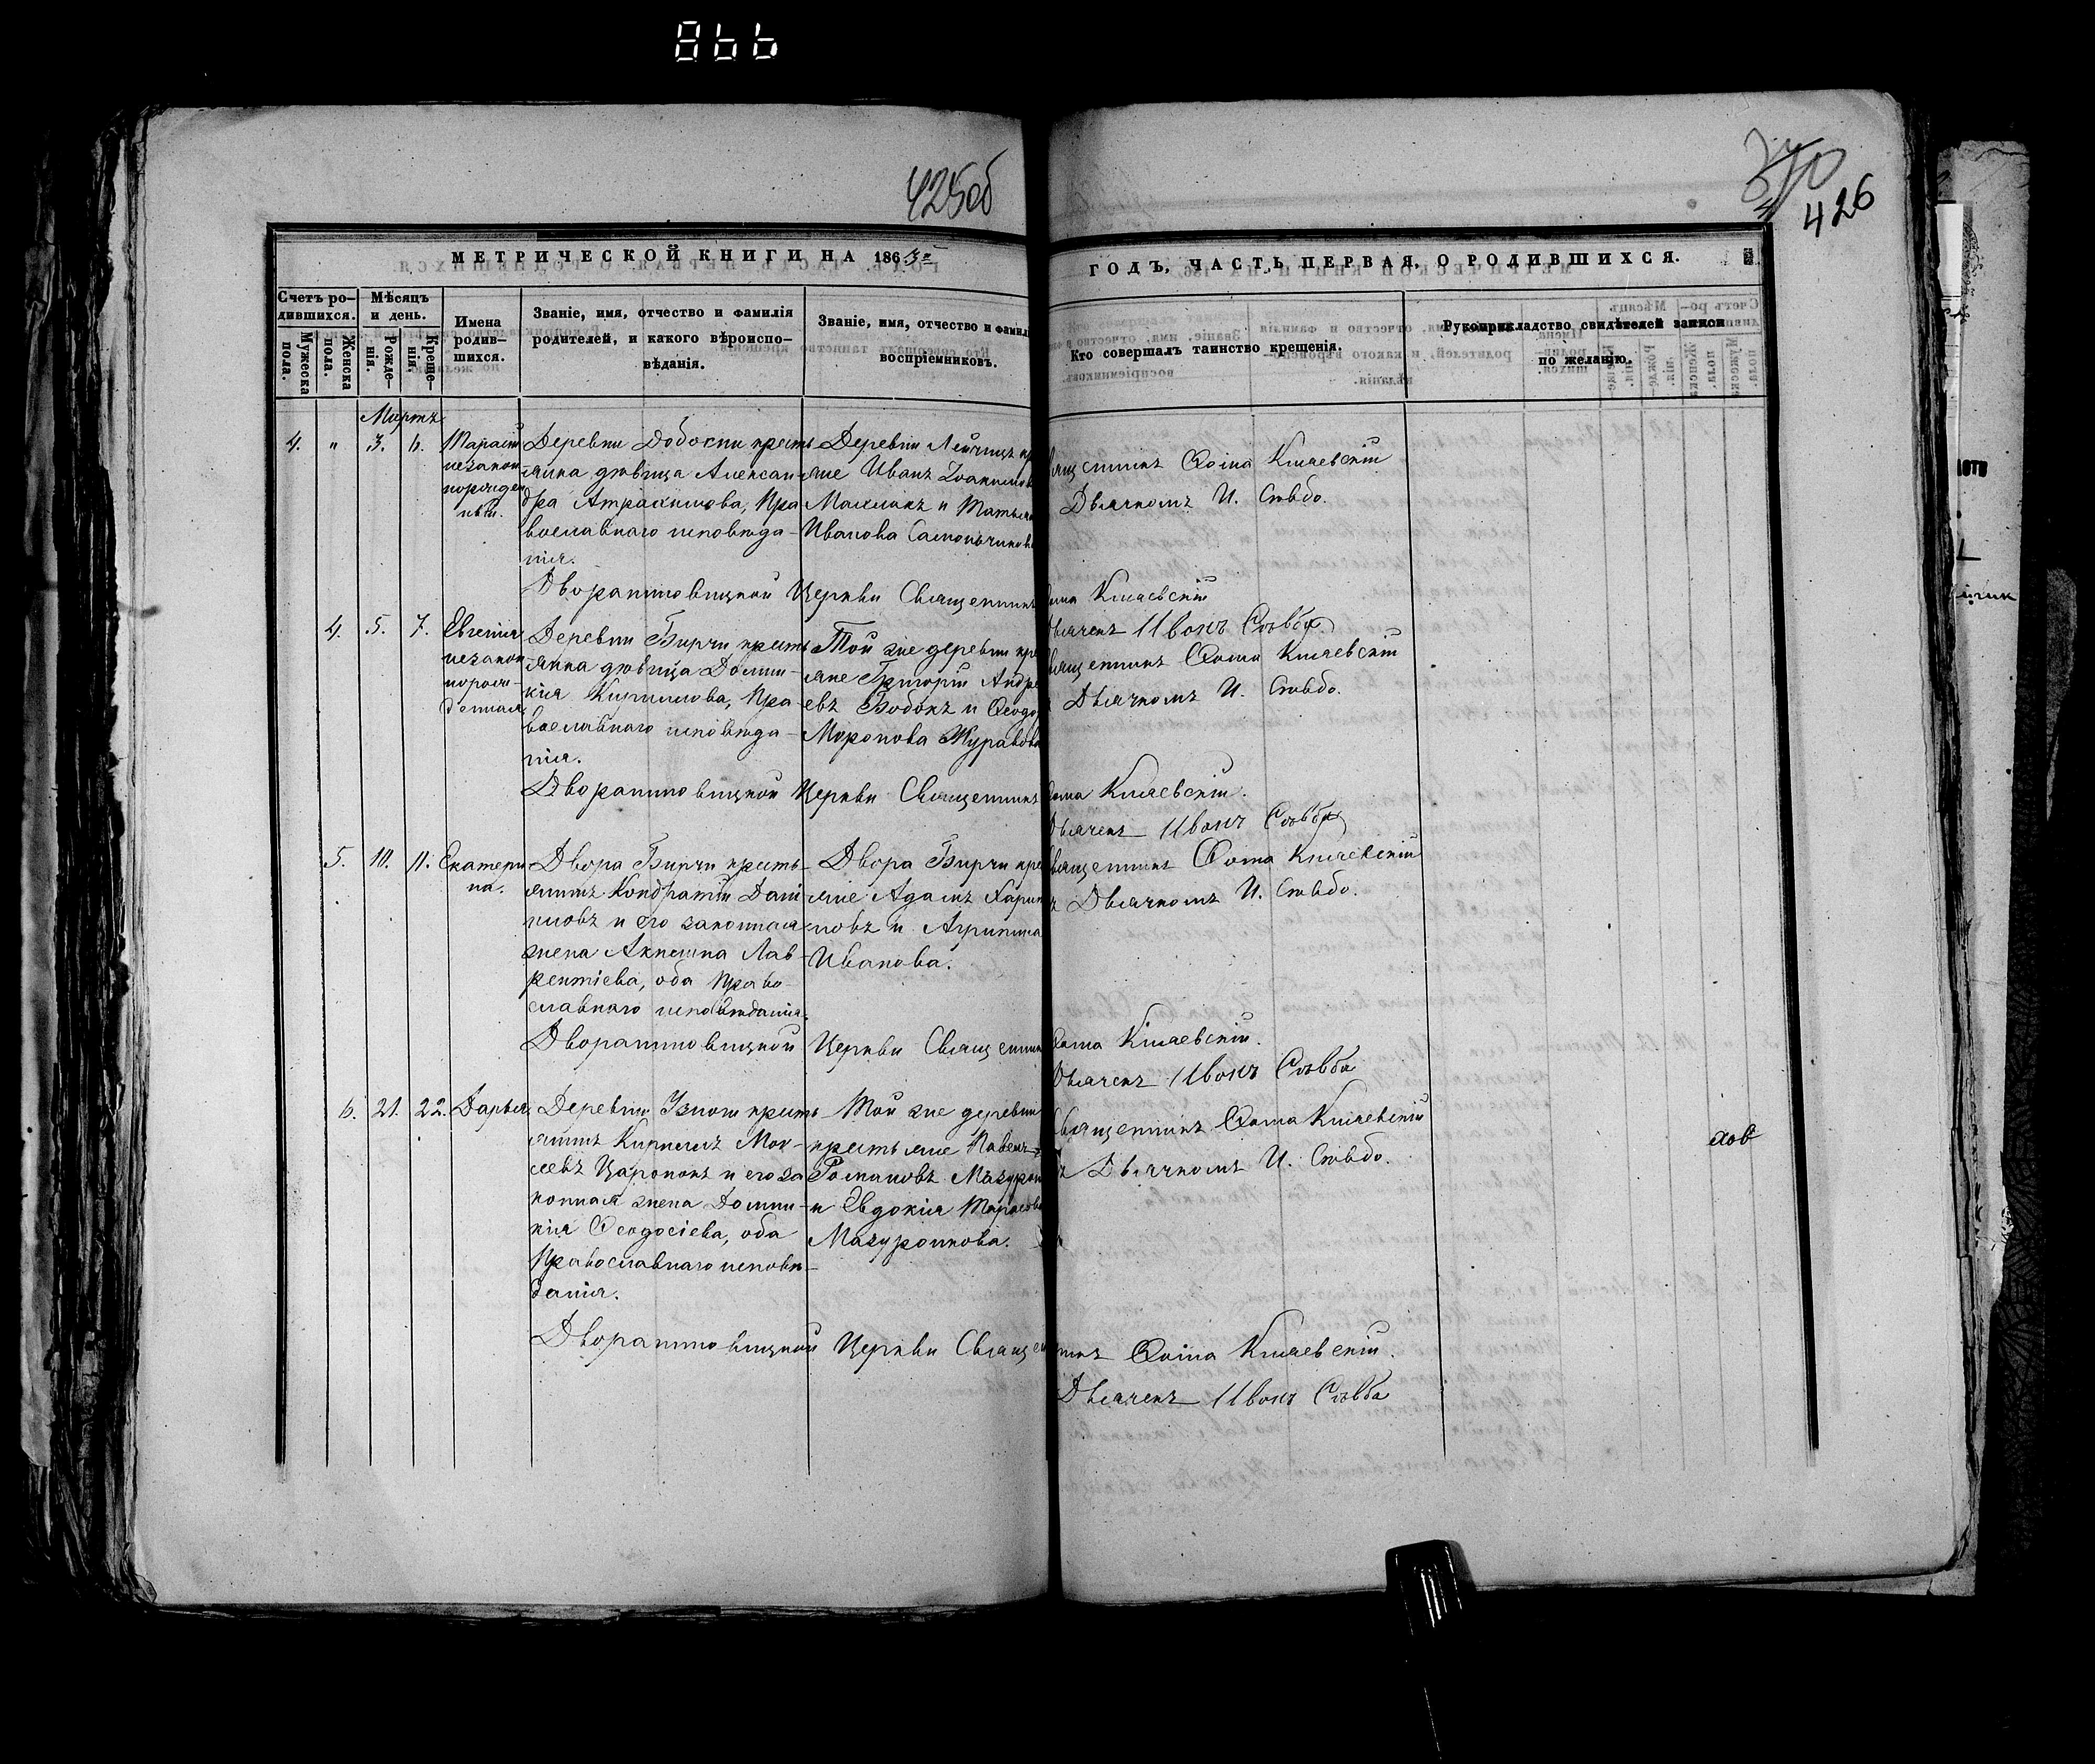 866
425об
370
426
МЕТРИЧЕСКОЙ КНИГИ НА 1863й
ГОДЪ, ЧАСТЬ ПЕРВАЯ, О РОДИВШИХСЯ.
Счетъ ро-
дившихся.
Мужеска
пола.
Женска
пола.
Мѣсяцъ
и день.
Рожде-
нія.
Креще-
нія.
Имена
родив-
шихся.
Званіе, имя, отчество и фамилія
родителей, и какого вѣроиспо-
вѣданія.
Званіе, имя, отчество и фамил
воспріемниковъ.
Кто совершалъ таинство крещенія.
Рукоприкладство свидѣтелей записи
по желанію.
Мартъ
4. " 3. 6.
Тарасій
незакон
норожден
ный.
Деревни Добосни кресть
янка дѣвица Алексан-
дра Атрахимова, Пра
вославнаго исповѣда-
нія.
Деревни
яне Иванъ Іоакимов
и Татьяна
Иванова
ященникъ Ѳома Кіаевскій
Дьячкомъ И. Савбо.
Церкви Священникъ
ома Кіаевскій
ьячекъ Ивонъ Савба
4. 5. 7.
Евгенія
незакон
норож-
денная
Деревни Бирчи кресть
янка дѣвица Доми-
кія Кирилова, Пра
вославнаго исповѣда-
нія.
Той же деревни кре
яне Григорій Андре
евъ Бобокъ и Ѳеодор
Миронова Журавова
ященникъ Ѳома Кіаевскій
Дьячкомъ И. Савбо.
Церкви Священникъ
ома Кіаевскій.
ьячекъ Ивонъ Савба
5. 10. 11.
Екатери
на.
Двора Бирчи кресть-
янинъ Кондратій Дані
иловъ и его законная
жена Акилина Лав-
рентіева, оба Право-
славнаго исповѣданія.
Двора Бирчи кре
яне Адамъ Харит
новъ и Агрипина
Иванова.
вященникъ Ѳома Кіаевскій
ъ Дьячкомъ И. Савбо.
Церкви Священник
Ѳома Кіаевскій.
Дьячекъ Ивонъ Савба
6. 21. 22.
Дарья.
Деревни кресть
янинъ Кирилъ Мои-
сеевъ Царонокъ и его за
конная жена Доми-
кія Ѳеодосіева, оба
Православнаго исповѣ-
данія.
Той же деревни
крестьяне Павелъ
Романовъ Мазурон
и Евдокія Тарасова
Мазуронкова.
Священникъ Ѳома Кіаевскій
ъ Дьячкомъ И. Савбо.
Церкви Священ
никъ Ѳома Кіаевскій.
Дьячекъ Ивонъ Савба